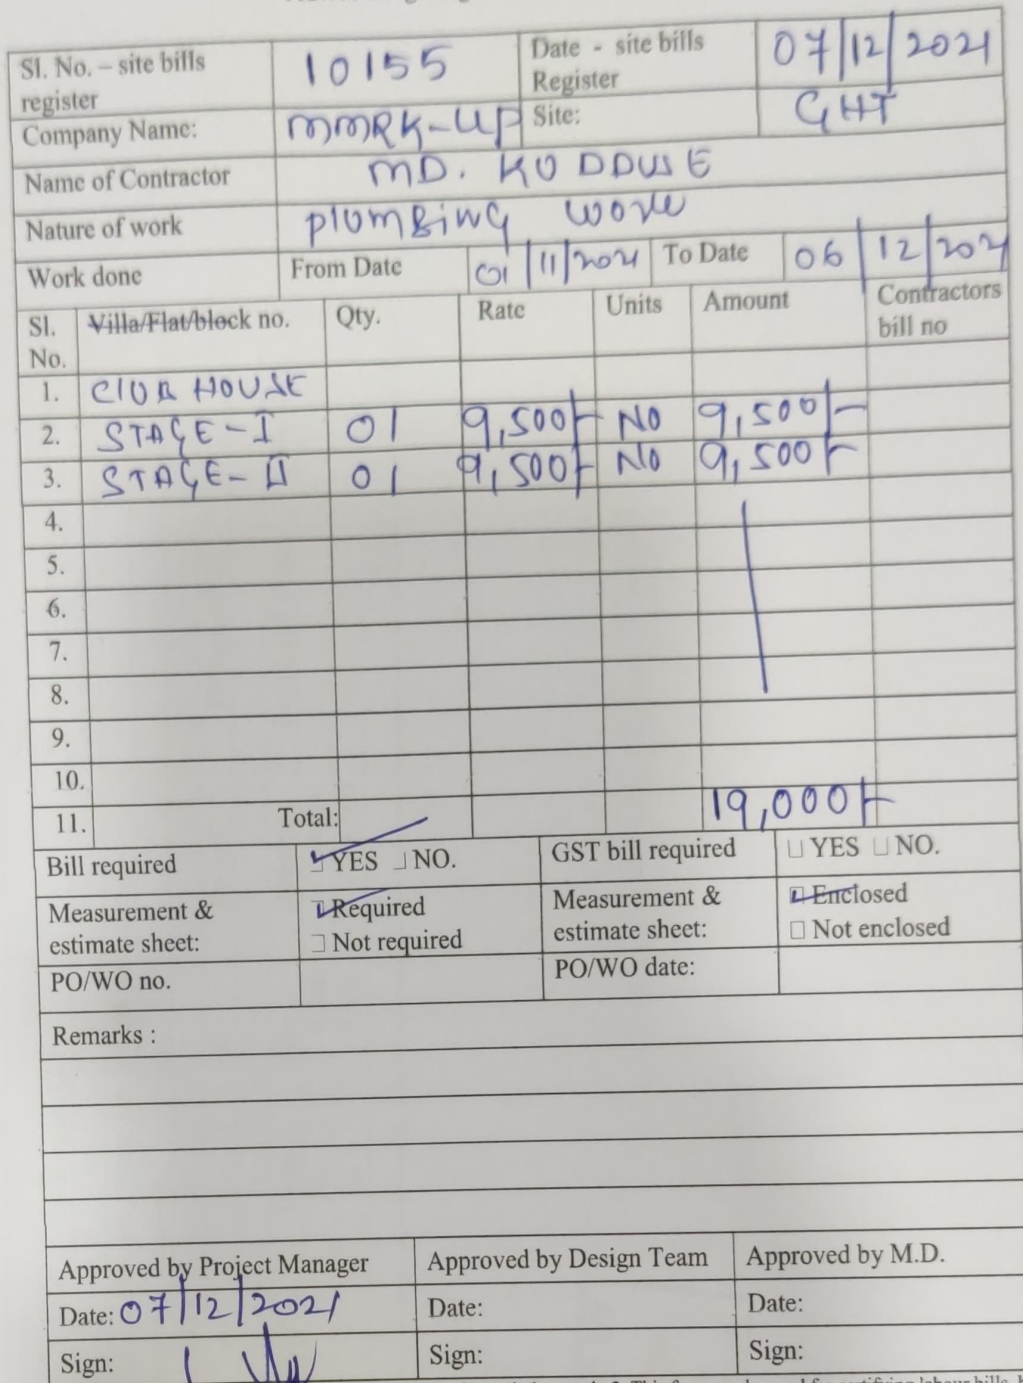 Sl. No. – site bills register 10155 Date - site bills Register 07/12/2021
Company Name: MMRK-UP Site: GHT
Name of Contractor MD. KODDUSE
Nature of work plumBing work
Work done From Date 01/11/2021 To Date 06/12/2021
Sl. No. Villa/Flat/block no. Qty. Rate Units Amount Contractors bill no
1. CIUB HOUSE
2. STAGE-I 01 9,500/- NO 9,500/-
3. STAGE-II 01 9,500/- NO 9,500/-
4.
5.
6.
7.
8.
9.
10.
11. Total: 19,000/-
Bill required YES NO. GST bill required YES NO.
Measurement & estimate sheet: Required Not required Measurement & estimate sheet: Enclosed Not enclosed
PO/WO no. PO/WO date:
Remarks :
Approved by Project Manager Approved by Design Team Approved by M.D.
Date: 07/12/2021 Date: Date:
Sign: Sign: Sign: